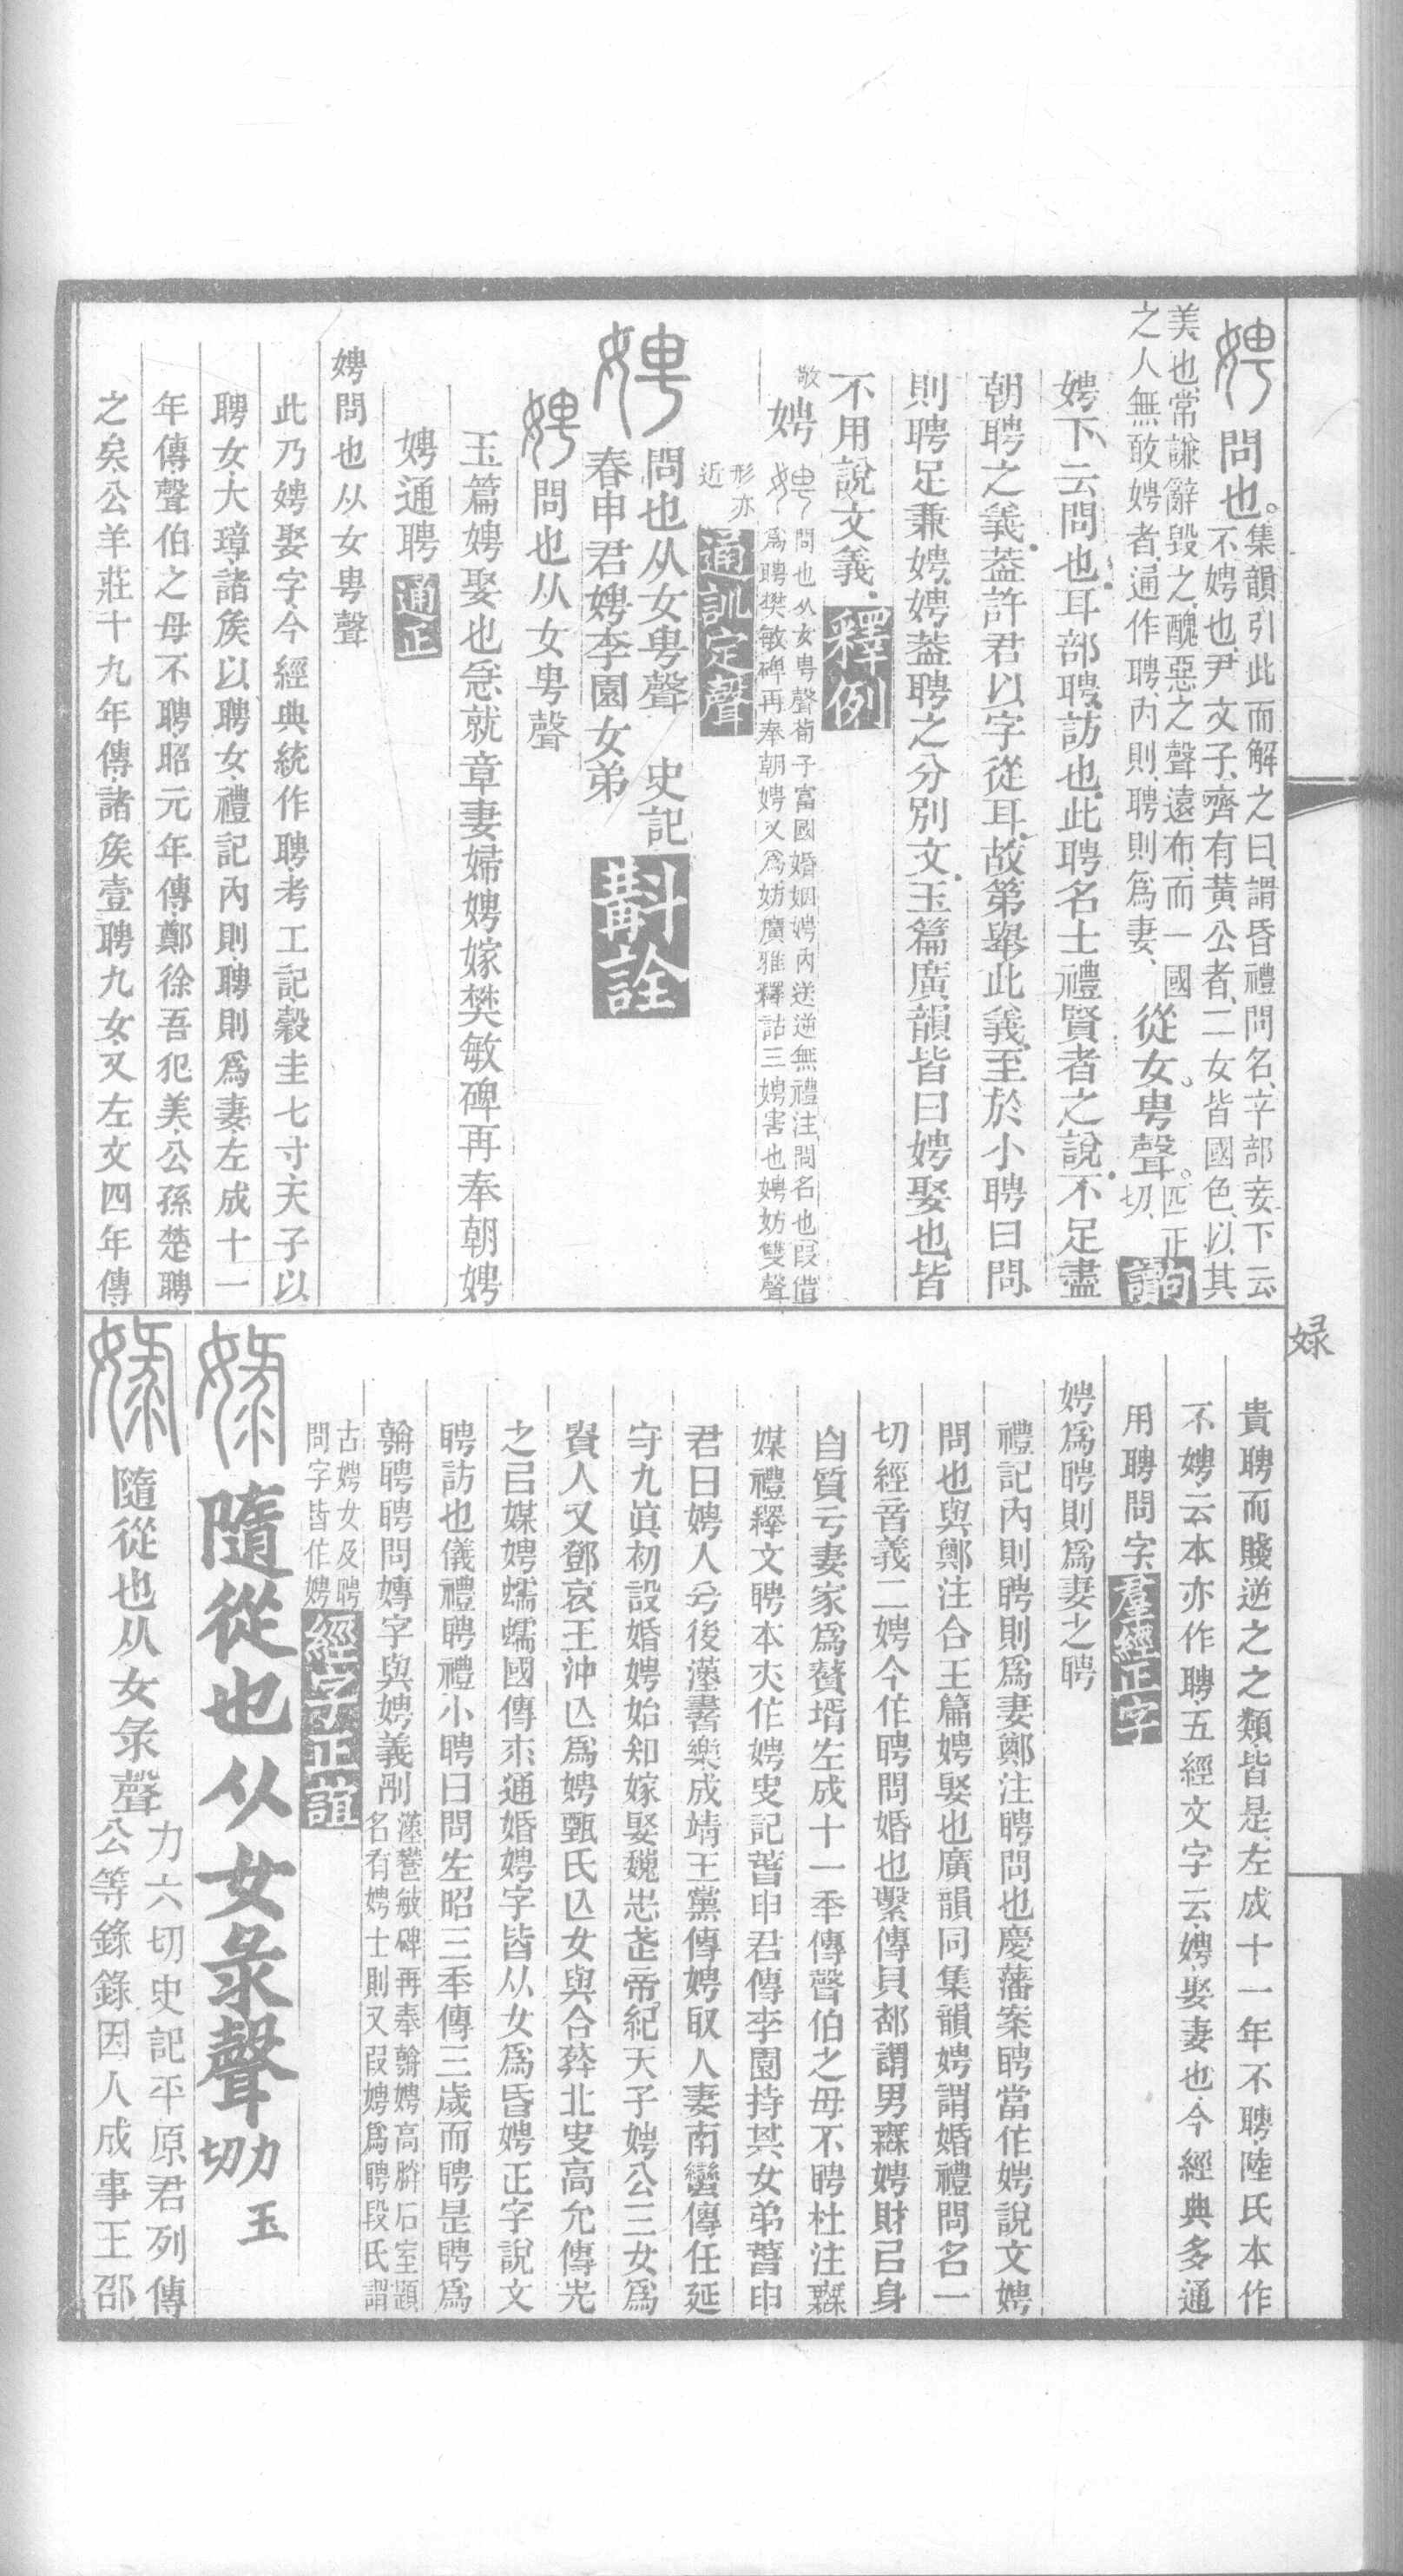 娉問也。集韻引此而解之曰、謂昏禮問名、辛部妾下云、
不娉也、尹文子、齊有黃公者、二女皆國色、以其
美也、常謙辭毀之、醜惡之聲遠布、而一國
之人無敢娉者、通作聘、內則、聘則爲妻、
從女。甹聲。匹正切、
句讀
娉下云問也、耳部聘、訪也、此聘名士禮賢者之說、不足盡
朝聘之義、葢許君以字從耳、故第舉此義、至於小聘曰問、
則聘足兼娉、娉葢聘之分別文、玉篇廣韻皆曰娉娶也、皆
不用說文義、釋例
敬
娉
問也从女甹聲荀子富國婚姻娉內送逆無禮注問名也叚借
爲聘樊敏碑再奉朝娉又爲妨廣雅釋詁三娉害也娉妨雙聲
形亦
近
通訓定聲
娉問也从女甹聲 史記
春申君娉李園女弟
斠詮
娉問也从女甹聲
玉篇娉娶也急就章妻婦娉嫁樊敏碑再奉朝娉
娉通聘 通正
娉問也从女甹聲
此乃娉娶字今經典統作聘考工記穀圭七寸天子以
聘女大璋諸矦以聘女禮記內則聘則爲妻左成十一
年傳聲伯之母不聘昭元年傳鄭徐吾犯美公孫楚聘
之矣公羊莊十九年傳諸矦壹聘九女又左文四年傳
娽
貴聘而賤逆之之類皆是左成十一年不聘陸氏本作
不娉云本亦作聘五經文字云娉娶妻也今經典多通
用聘問字羣經正字
娉爲聘則爲妻之聘
禮記內則聘則爲妻鄭注聘問也慶藩案聘當作娉說文娉
問也與鄭注合玉篇娉娶也廣韻同集韻娉謂婚禮問名一
切經音義二娉今作聘問婚也繫傳貝部謂男無娉財㠯身
自質亏妻家爲贅壻左成十一年傳聲伯之母不聘杜注無
媒禮釋文聘本亦作娉史記春申君傳李園持其女弟春申
君曰娉人乎後漢書樂成靖王黨傳娉取人妻南蠻傳任延
守九眞初設婚娉始知嫁娶魏志 帝紀天子娉公三女爲
貴人又鄧哀王沖亾爲娉甄氏亾女與合葬北史高允傳先
之㠯媒娉蠕蠕國傳 通婚娉字皆从女爲昏娉正字說文
聘訪也儀禮聘禮小聘曰問左昭三年傳三歲而聘是聘爲
朝聘聘問專字與娉義別
漢樊敏碑再奉朝娉高朕石室題
名有娉士則又叚娉爲聘段氏謂
古娉女及聘
問字皆作娉
經字正誼
娽隨從也从女彔聲力玉切
娽隨從也从女彔聲
力六切史記平原君列傳
公等錄錄因人成事王邵